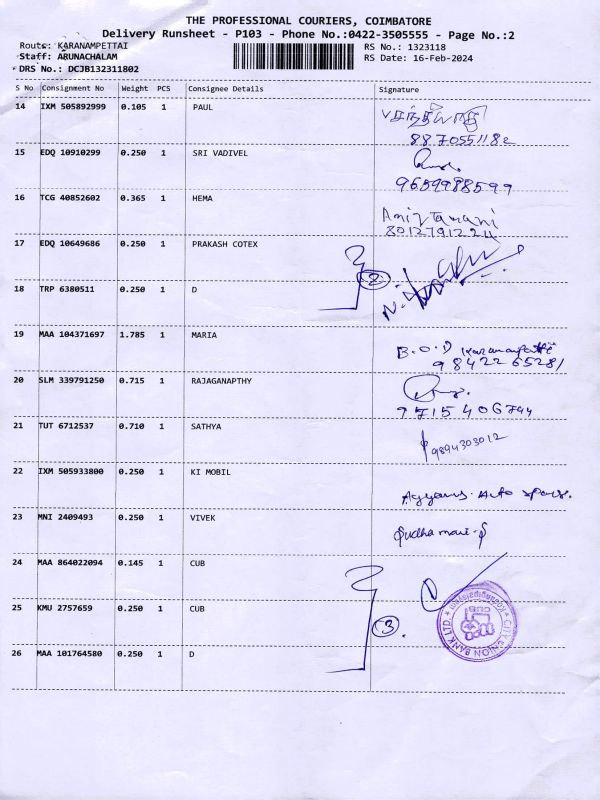 THE PROFESSIONAL COURIERS, COIMBATORE
Delivery Runsheet - P103 - Phone No.:0422-3505555 - Page No.:2
Route: KARANAMPETTAI RS No.: 1323118
Staff: ARUNACHALAM RS Date: 16-Feb-2024
DRS No.: DCJB132311802
S No Consignment No Weight PCS Consignee Details Signature
14 IXM 505892999 0.105 1 PAUL
8870551182
15 EDQ 10910299 0.250 1 SRI VADIVEL
9659988599
16 TCG 40852602 0.365 1 HEMA
8012791224
17 EDQ 10649686 0.250 1 PRAKASH COTEX
2
18 TRP 6380511 0.250 1 D
19 MAA 104371697 1.785 1 MARIA
B.O.D
9842265281
20 SLM 339791250 0.715 1 RAJAGANAPTHY
9715406744
21 TUT 6712537 0.710 1 SATHYA
9894303012
22 IXM 505933800 0.250 1 KI MOBIL
Auto
23 MNI 2409493 0.250 1 VIVEK
Sudha
24 MAA 864022094 0.145 1 CUB
25 KMU 2757659 0.250 1 CUB
3
CUB
CITY UNION BANK LTD.
26 MAA 101764580 0.250 1 D